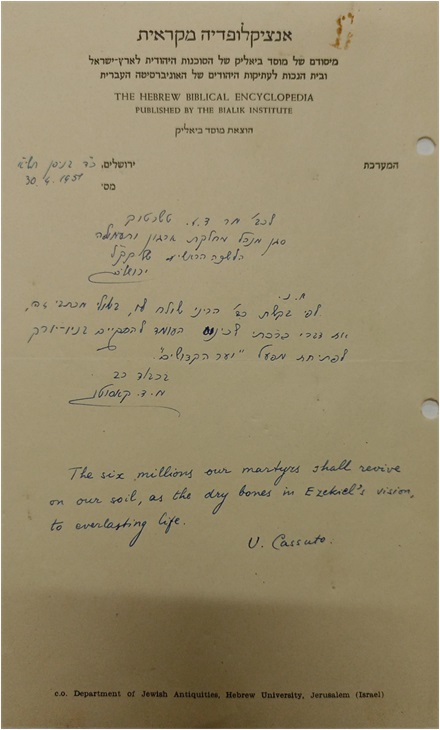 אנציקלופדיה מקראית
מיסודם של מוסד ביאליק של הסוכנות היהודית לארץ-ישראל
ובית הנכות לעתיקות היהודים של האוניברסיטה העברית
THE HEBREW BIBLICAL ENCYCLOPEDIA
PUBLISHED BY THE BIALIK INSTITUTE
הוצאת מוסד ביאליק
המערכת
ירושלים, כ"ד בניסן תשי"א
30.4.1951
מס'
לכב' מר
סגן מנהל מחלקת ארגון ותעמולה
הלשכה הראשית של קק"ל
ירושלים
א. נ.
לפי בקשת כב' הריני שולח לו, בשולי מכתבי זה,
את דברי ברכתי לכינוס העומד להתקיים בניו-יורק
לפתיחת מפעל "יער הקדושים".
בכבוד רב
מ. ד. קאסוטו
The six millions our martyrs shall revive
on our soil, as the dry bones in Ezekiel's vision,
to everlasting life.
U. Cassuto.
c.o. Department of Jewish Antiquities, Hebrew University, Jerusalem (Israel)